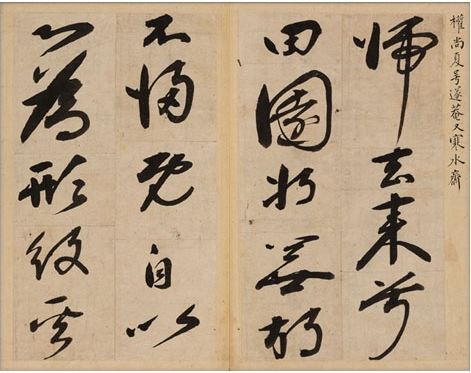 權尚夏号遂菴又寒水齋
歸去來兮
田園將蕪胡
不歸既自以
心爲形役奚